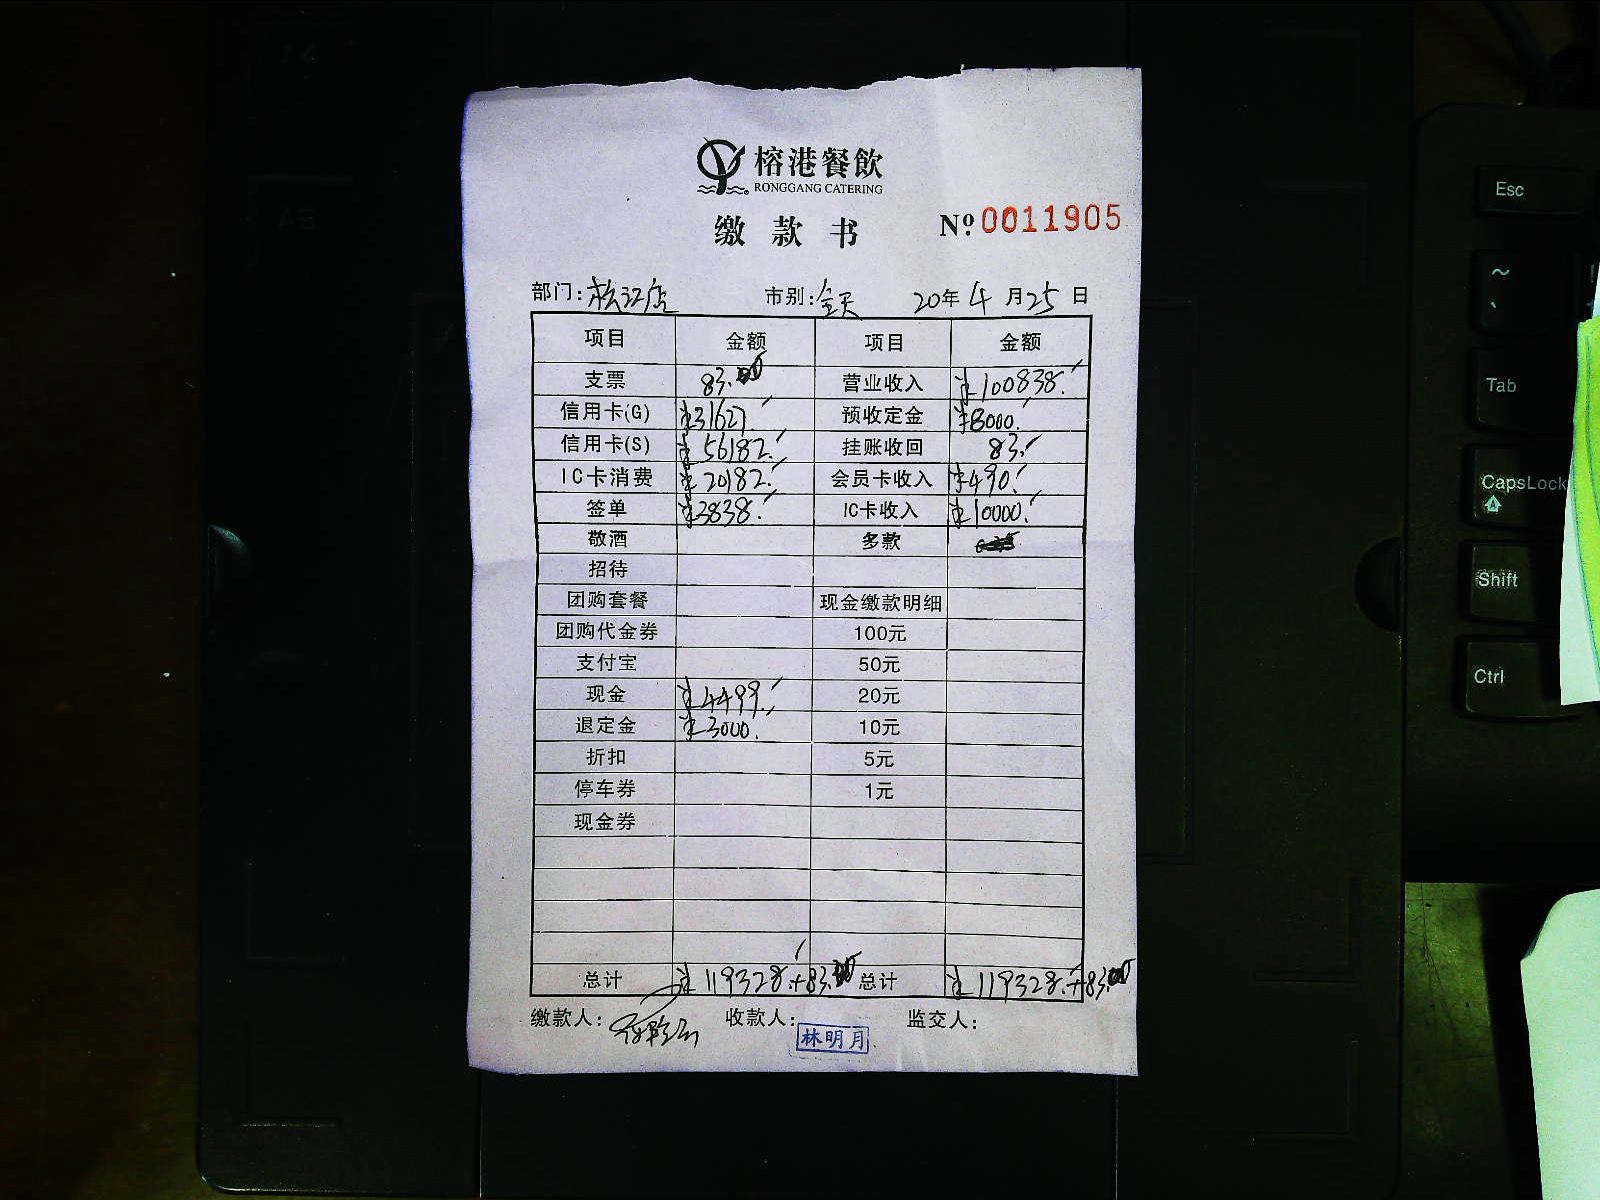 榕港餐飲
RONGGANG CATERING
缴款书 №0011905
部门:松江店 市别:全天 20年4月25日
项目 金额 项目 金额
支票 83. 营业收入 ¥100838.
信用卡(G) ¥31627. 预收定金 ¥8000.
信用卡(S) ¥56182. 挂账收回 83.
IC卡消费 ¥20182. 会员卡收入 ¥490.
签单 ¥3838. IC卡收入 ¥10000.
敬酒 多款
招待
团购套餐 现金缴款明细
团购代金券 100元
支付宝 50元
现金 ¥4499. 20元
退定金 ¥3000. 10元
折扣 5元
停车券 1元
现金券
总计 ¥119328.+83. 总计 ¥119328.+83.
缴款人: 收款人: 林明月 监交人:
Esc
~
Tab
CapsLock
Shift
Ctrl